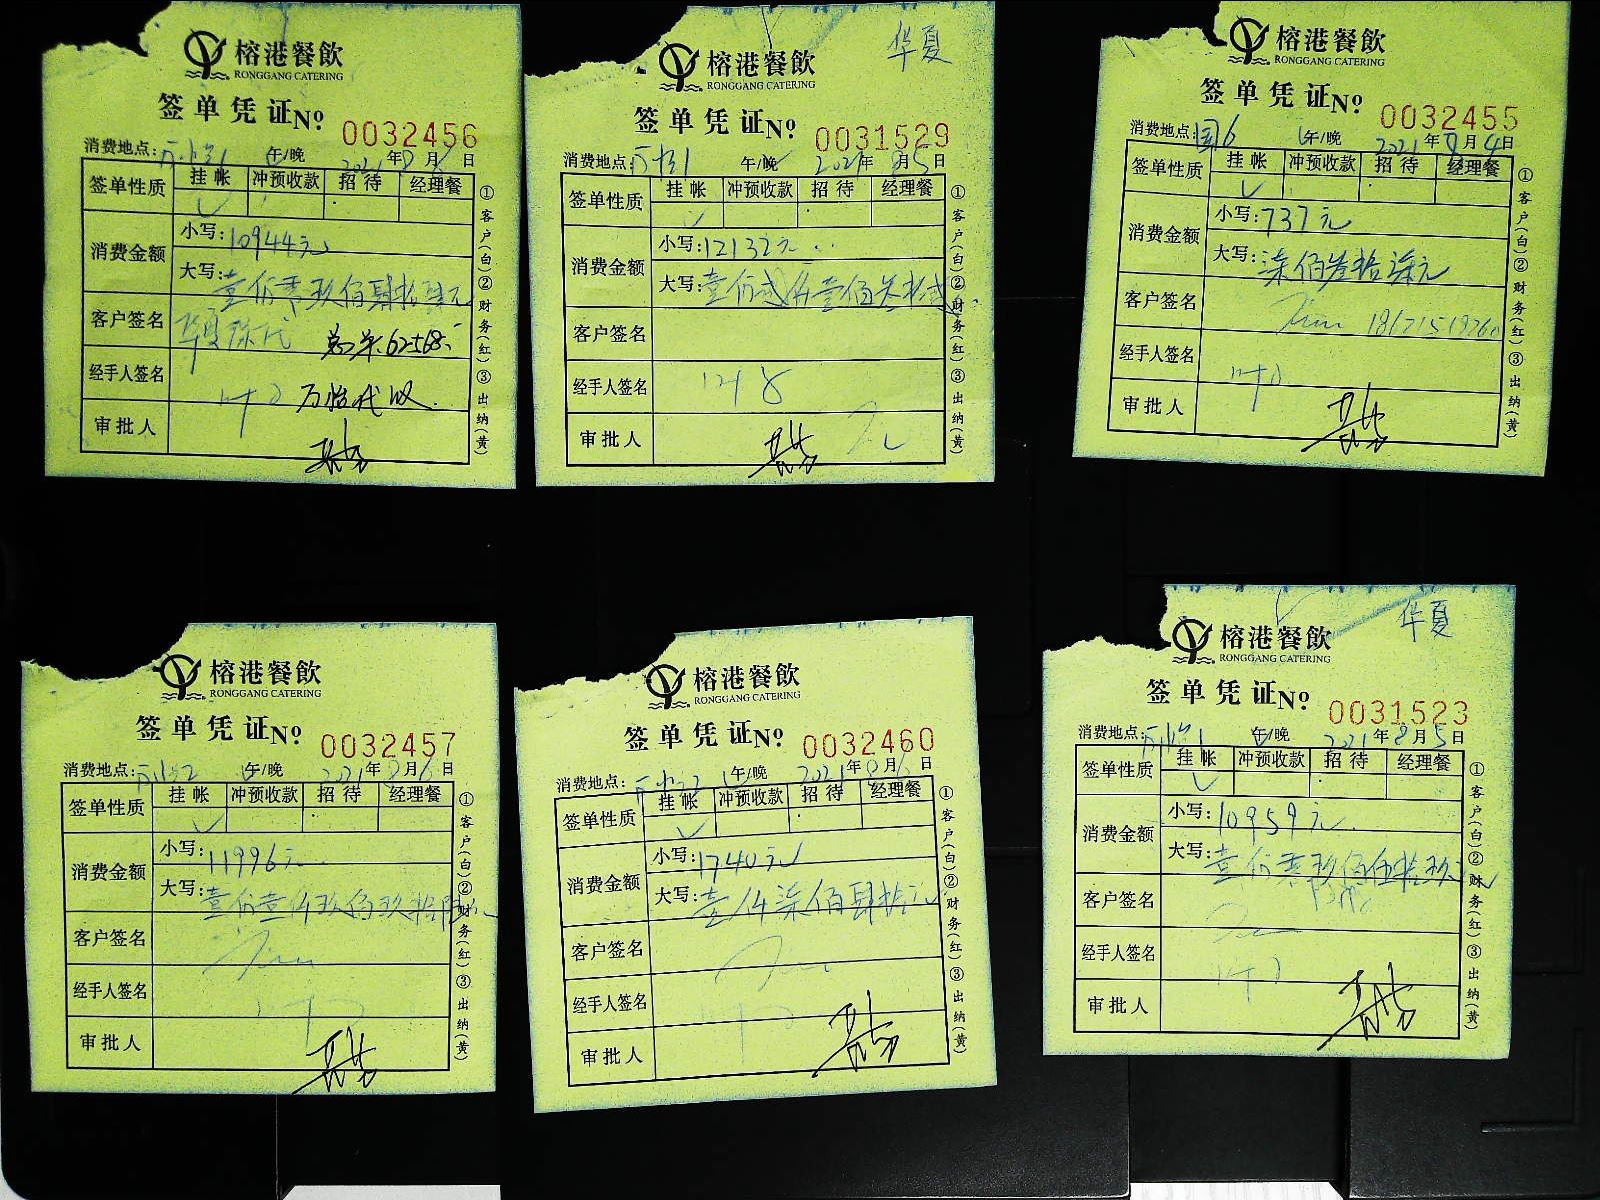 榕港餐飲
RONGGANG CATERING
签单凭证№ 0032456
消费地点: 午/晚 2021年8月6日
签单性质 挂帐 冲预收款 招待 经理餐
消费金额 小写:10944元
大写:壹仟零玖佰肆拾肆元
客户签名 华夏 总单:62568
经手人签名 代收
审批人
①客户(白)②财务(红)③出纳(黄)
华夏
榕港餐飲
RONGGANG CATERING
签单凭证№ 0031529
消费地点: 午/晚 2021年8月5日
签单性质 挂帐 冲预收款 招待 经理餐
消费金额 小写:12132元
大写:壹仟贰仟壹佰叁拾贰
客户签名
经手人签名
审批人
①客户(白)②财务(红)③出纳(黄)
榕港餐飲
RONGGANG CATERING
签单凭证№ 0032455
消费地点:国6 午/晚 2021年8月4日
签单性质 挂帐 冲预收款 招待 经理餐
消费金额 小写:737元
大写:柒佰叁拾柒元
客户签名
经手人签名
审批人
①客户(白)②财务(红)③出纳(黄)
榕港餐飲
RONGGANG CATERING
签单凭证№ 0032457
消费地点: 午/晚 2021年8月6日
签单性质 挂帐 冲预收款 招待 经理餐
消费金额 小写:11996元
大写:壹仟壹仟玖佰玖拾陆元
客户签名
经手人签名
审批人
①客户(白)②财务(红)③出纳(黄)
榕港餐飲
RONGGANG CATERING
签单凭证№ 0032460
消费地点: 午/晚 2021年8月6日
签单性质 挂帐 冲预收款 招待 经理餐
消费金额 小写:1740元
大写:壹仟柒佰肆拾元
客户签名
经手人签名
审批人
①客户(白)②财务(红)③出纳(黄)
华夏
榕港餐飲
RONGGANG CATERING
签单凭证№ 0031523
消费地点: 午/晚 2021年8月5日
签单性质 挂帐 冲预收款 招待 经理餐
消费金额 小写:10959元
大写:壹仟零玖佰伍拾玖元
客户签名
经手人签名
审批人
①客户(白)②财务(红)③出纳(黄)